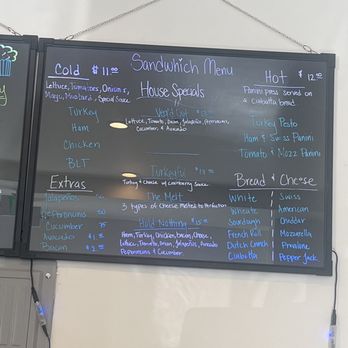 Sandwhich Menu
Cold $11.00
Lettuce, Tomatoes, Onions,
Mayo, Mustard, Special Sauce
Turkey
Ham
Chicken
BLT
Extras
Jalapeños
Pepperonins 50
Cucumber 75
Avocado $1.
Bacon $2.
House Specials
Lettuce, Tomato, Onion, Jalapeños, Pepperonins,
Cucumber, & Avocado
Turkey & Cheese w/ Cranberry Sauce
The Melt
3 types of Cheese Melted to Perfection
Hold Nothing
Ham, Turkey, Chicken, Bacon, Cheese,
Lettuce, Tomato, Onion, Jalapeños, Avocado
Pepperonins & Cucumber
Hot $12.00
Panini press served on
a Ciabatta bread
Turkey Pesto
Ham & Swiss Panini
Tomato & Mozz Panini
Bread & Cheese
White Swiss
Wheate American
Sourdough Cheddar
French Roll Mozzarella
Dutch Crunch Provalone
Ciabatta Pepper Jack